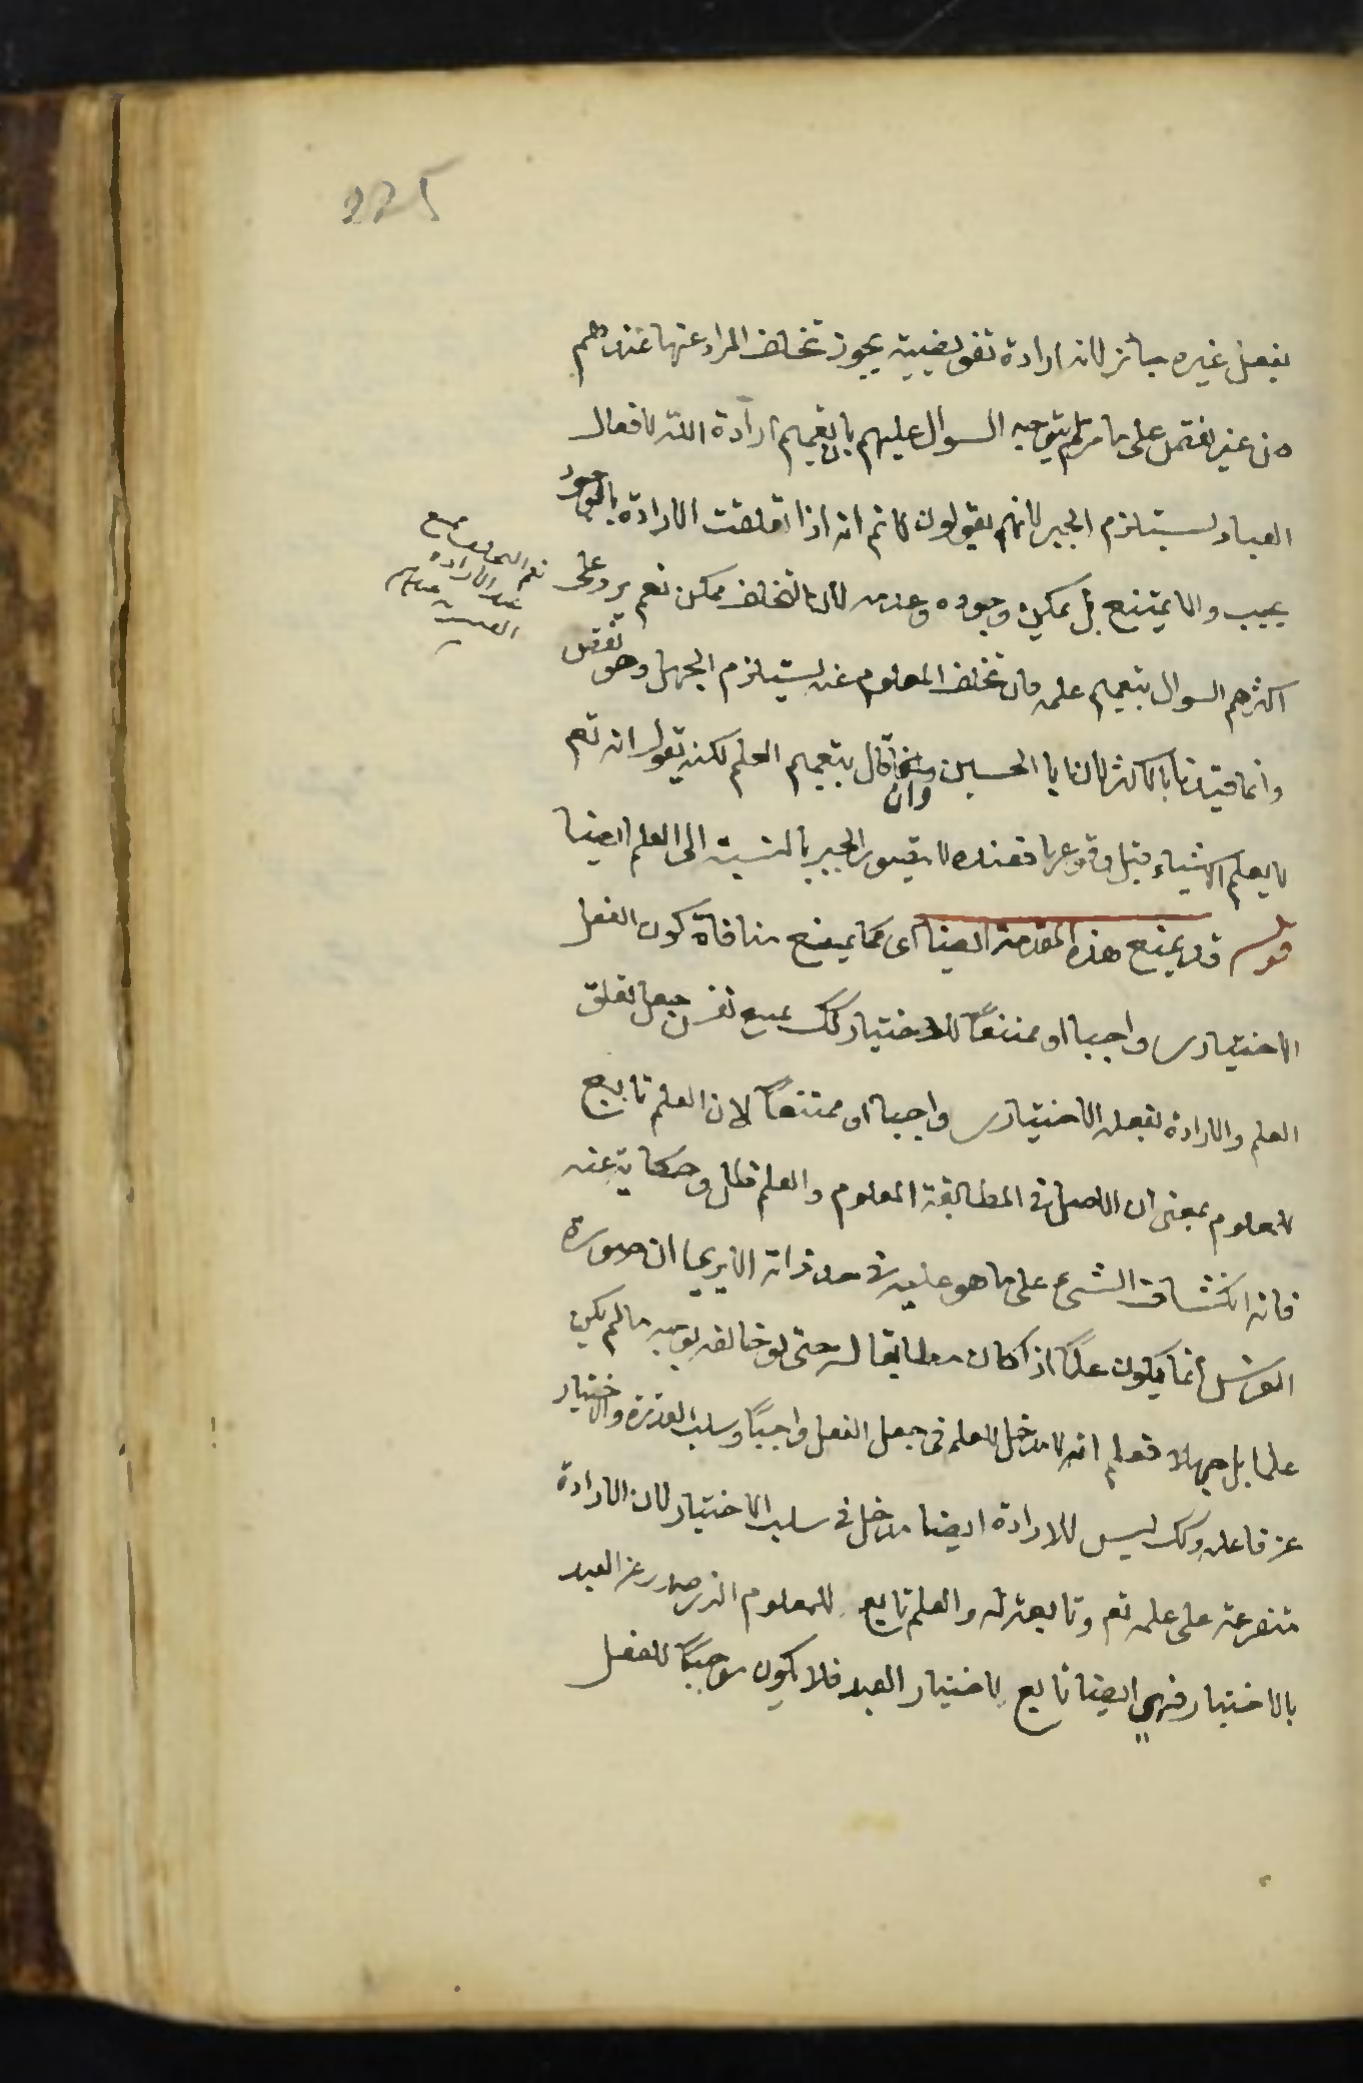 225
بفعل غيره جائز لانه ارادة تفويضية يجوز تخلف المراد عنها عندهم
من غير نقص على ما مر فلم يتوجه السوال عليهم بان تعميم ارادة الله لافعال
العباد يستلزم الجبر لانهم يقولون لا نم انه اذا تعلقت الارادة بالوجود
يجب والا يمتنع بل يمكن وجوده وعدمه لان التخلف ممكن نعم يرد على
اكثرهم السوال بتعميم علمه فان تخلف المعلوم عنه يستلزم الجهل وهو نقص
وانما قيدنا بالاكثر لان ابا الحسين وان قال بتعميم العلم لكنه يقول انه تع
لا يعلم الاشياء قبل وقوعها فعنده لا يتصور الجبر بالنسبة الى العلم ايضا
قوله قد يمنع هذه المقدمة ايضا اى كما يمنع منافاة كون الفعل
الاختيارى واجبا او ممتنعا للاختيار كك يمنع نفس جعل تعلق
العلم والارادة لفعله الاختيارى واجبا او ممتنعا لان العلم تابع
للمعلوم بمعنى ان الاصل فى المطابقة المعلوم والعلم ظل وحكاية عنه
فانه انكشاف الشىء على ما هو عليه فى حد ذاته الا يرى ان صورة
الفرس انما يكون علما اذا كان مطابقا له حتى لو خالفه بوجه ما لم يكن
علما بل جهلا فعلم انه لا مدخل للعلم فى جعل الفعل واجبا وسلب القدرة والاختيار
عن فاعله وكك ليس للارادة ايضا مدخل فى سلب الاختيار لان الارادة
متفرعة على علمه تع وتابعة له والعلم تابع للمعلوم الذى صدر عن العبد
بالاختيار فهى ايضا تابع لاختيار العبد فلا يكون موجبا للفعل
نعم التخلف يمتنع
عند الارادة